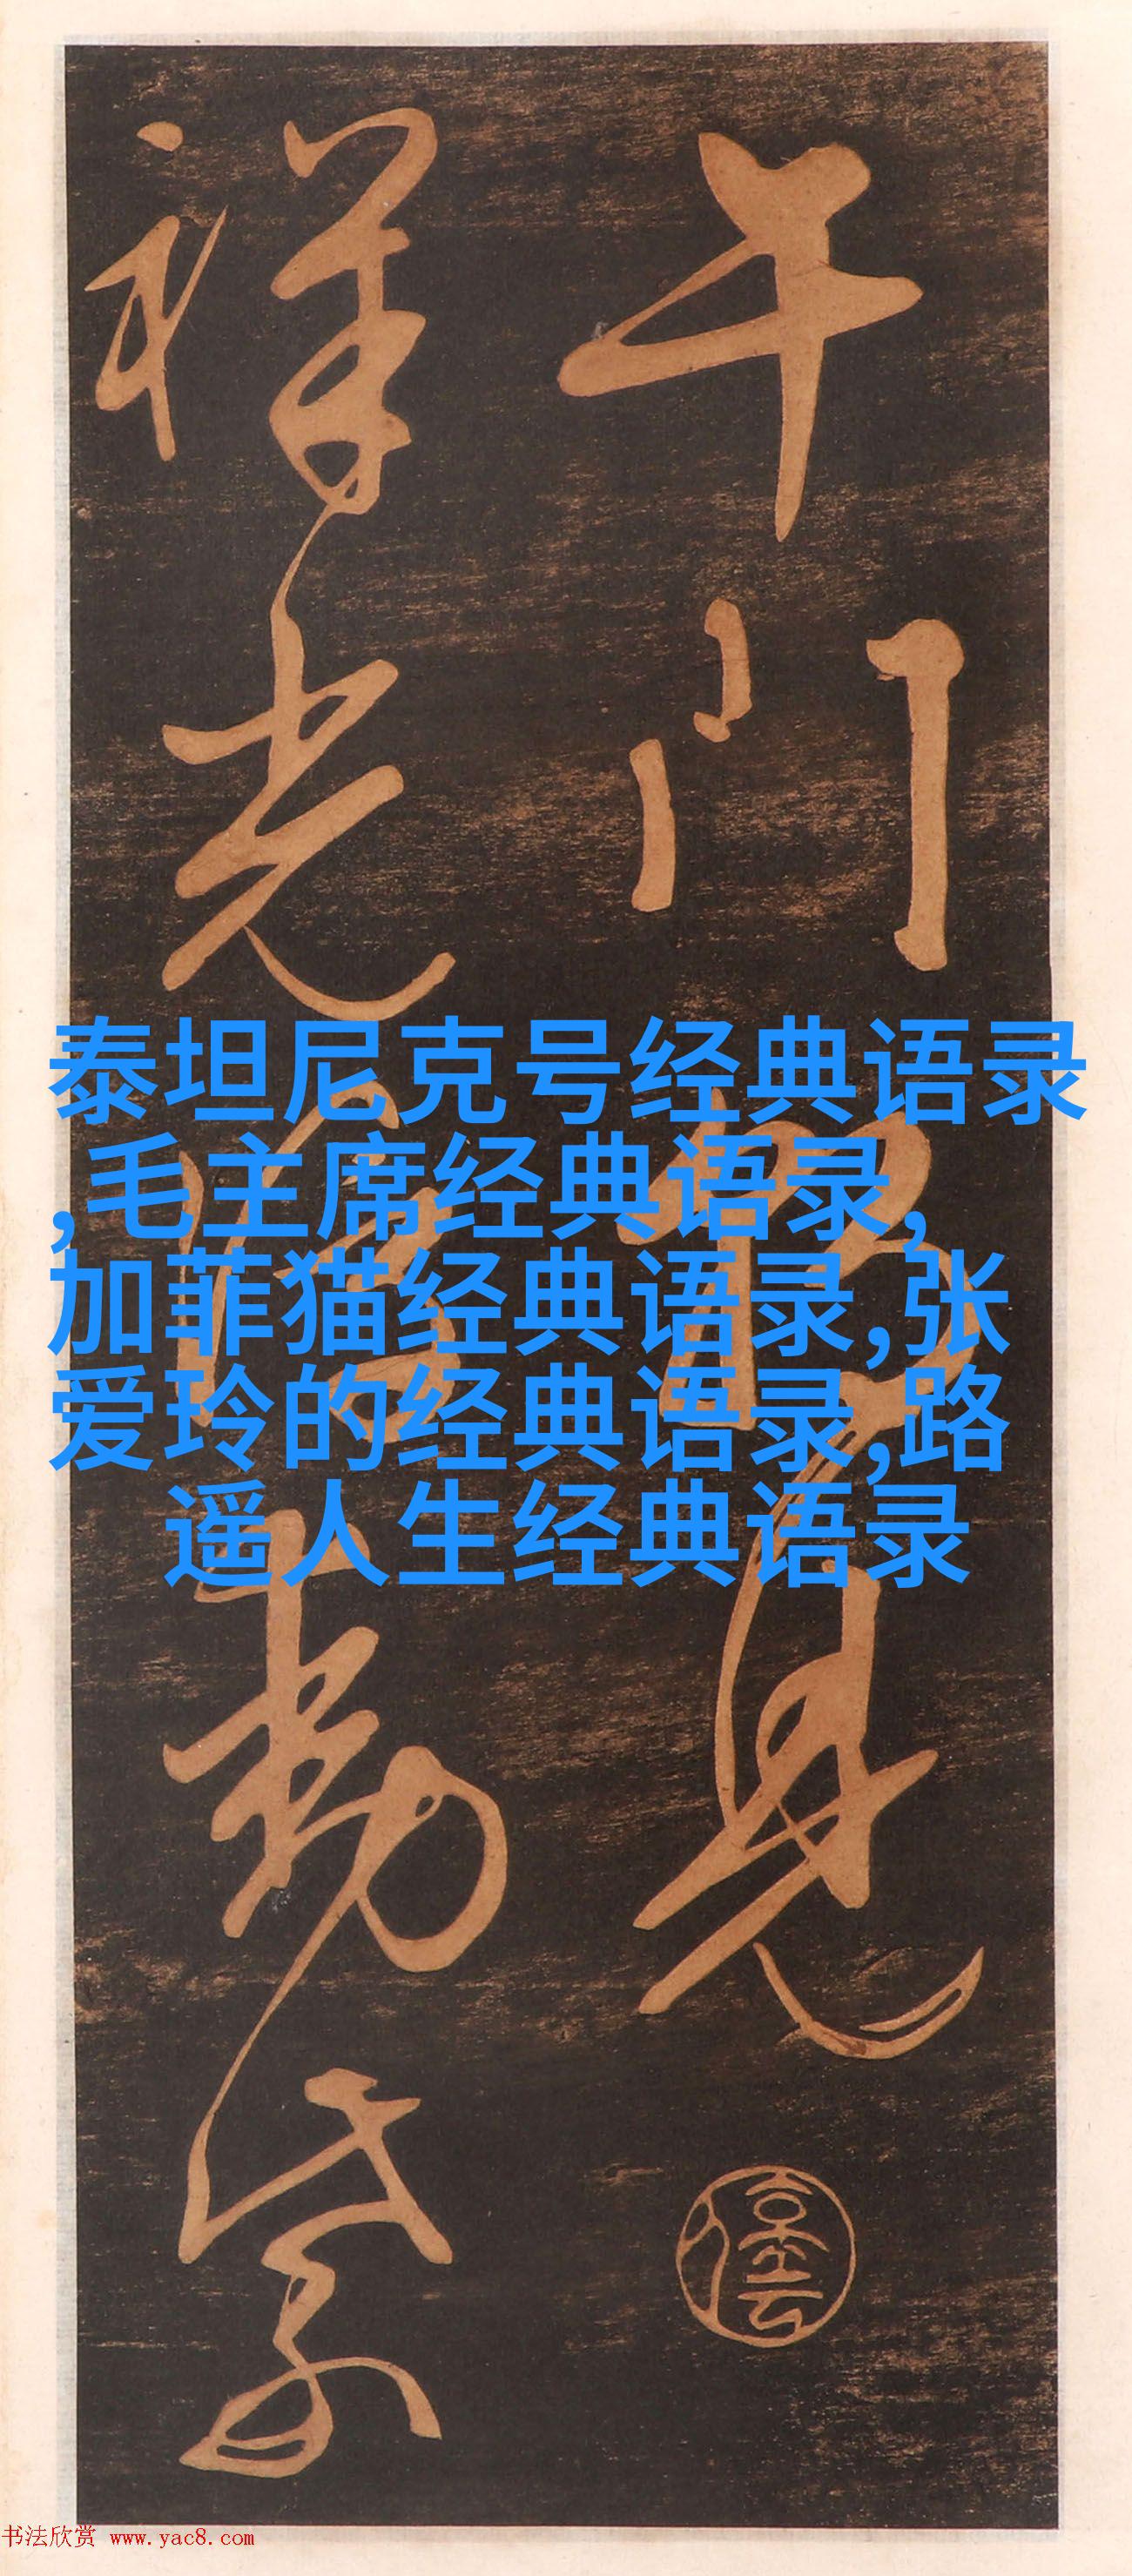 午门
见
祥光
動紫
泰坦尼克号经典语录
,毛主席经典语录,
加菲猫经典语录,张
爱玲的经典语录,路
遥人生经典语录
书法欣赏 www.yac8.com